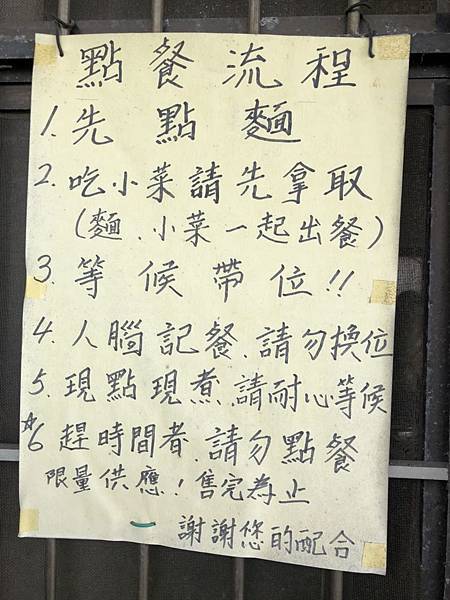 點餐流程
1.先點麵
2.吃小菜請先拿取
(麵、小菜一起出餐)
3.等候帶位!!
4.人腦記餐、請勿換位
5.現點現煮、請耐心等候
☆6 趕時間者、請勿點餐
限量供應!售完為止
謝謝您的配合